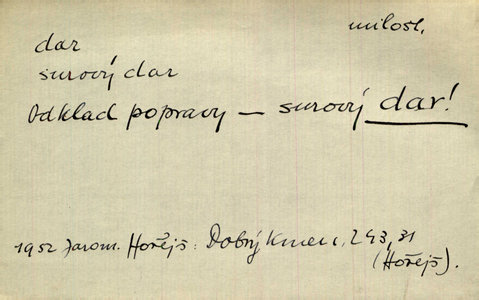 milost.
dar
surový dar
Odklad popravy — surový dar!
1952 Jarom. Hořejš: Dobrý Kmen, 243, 31
(Hořejš).